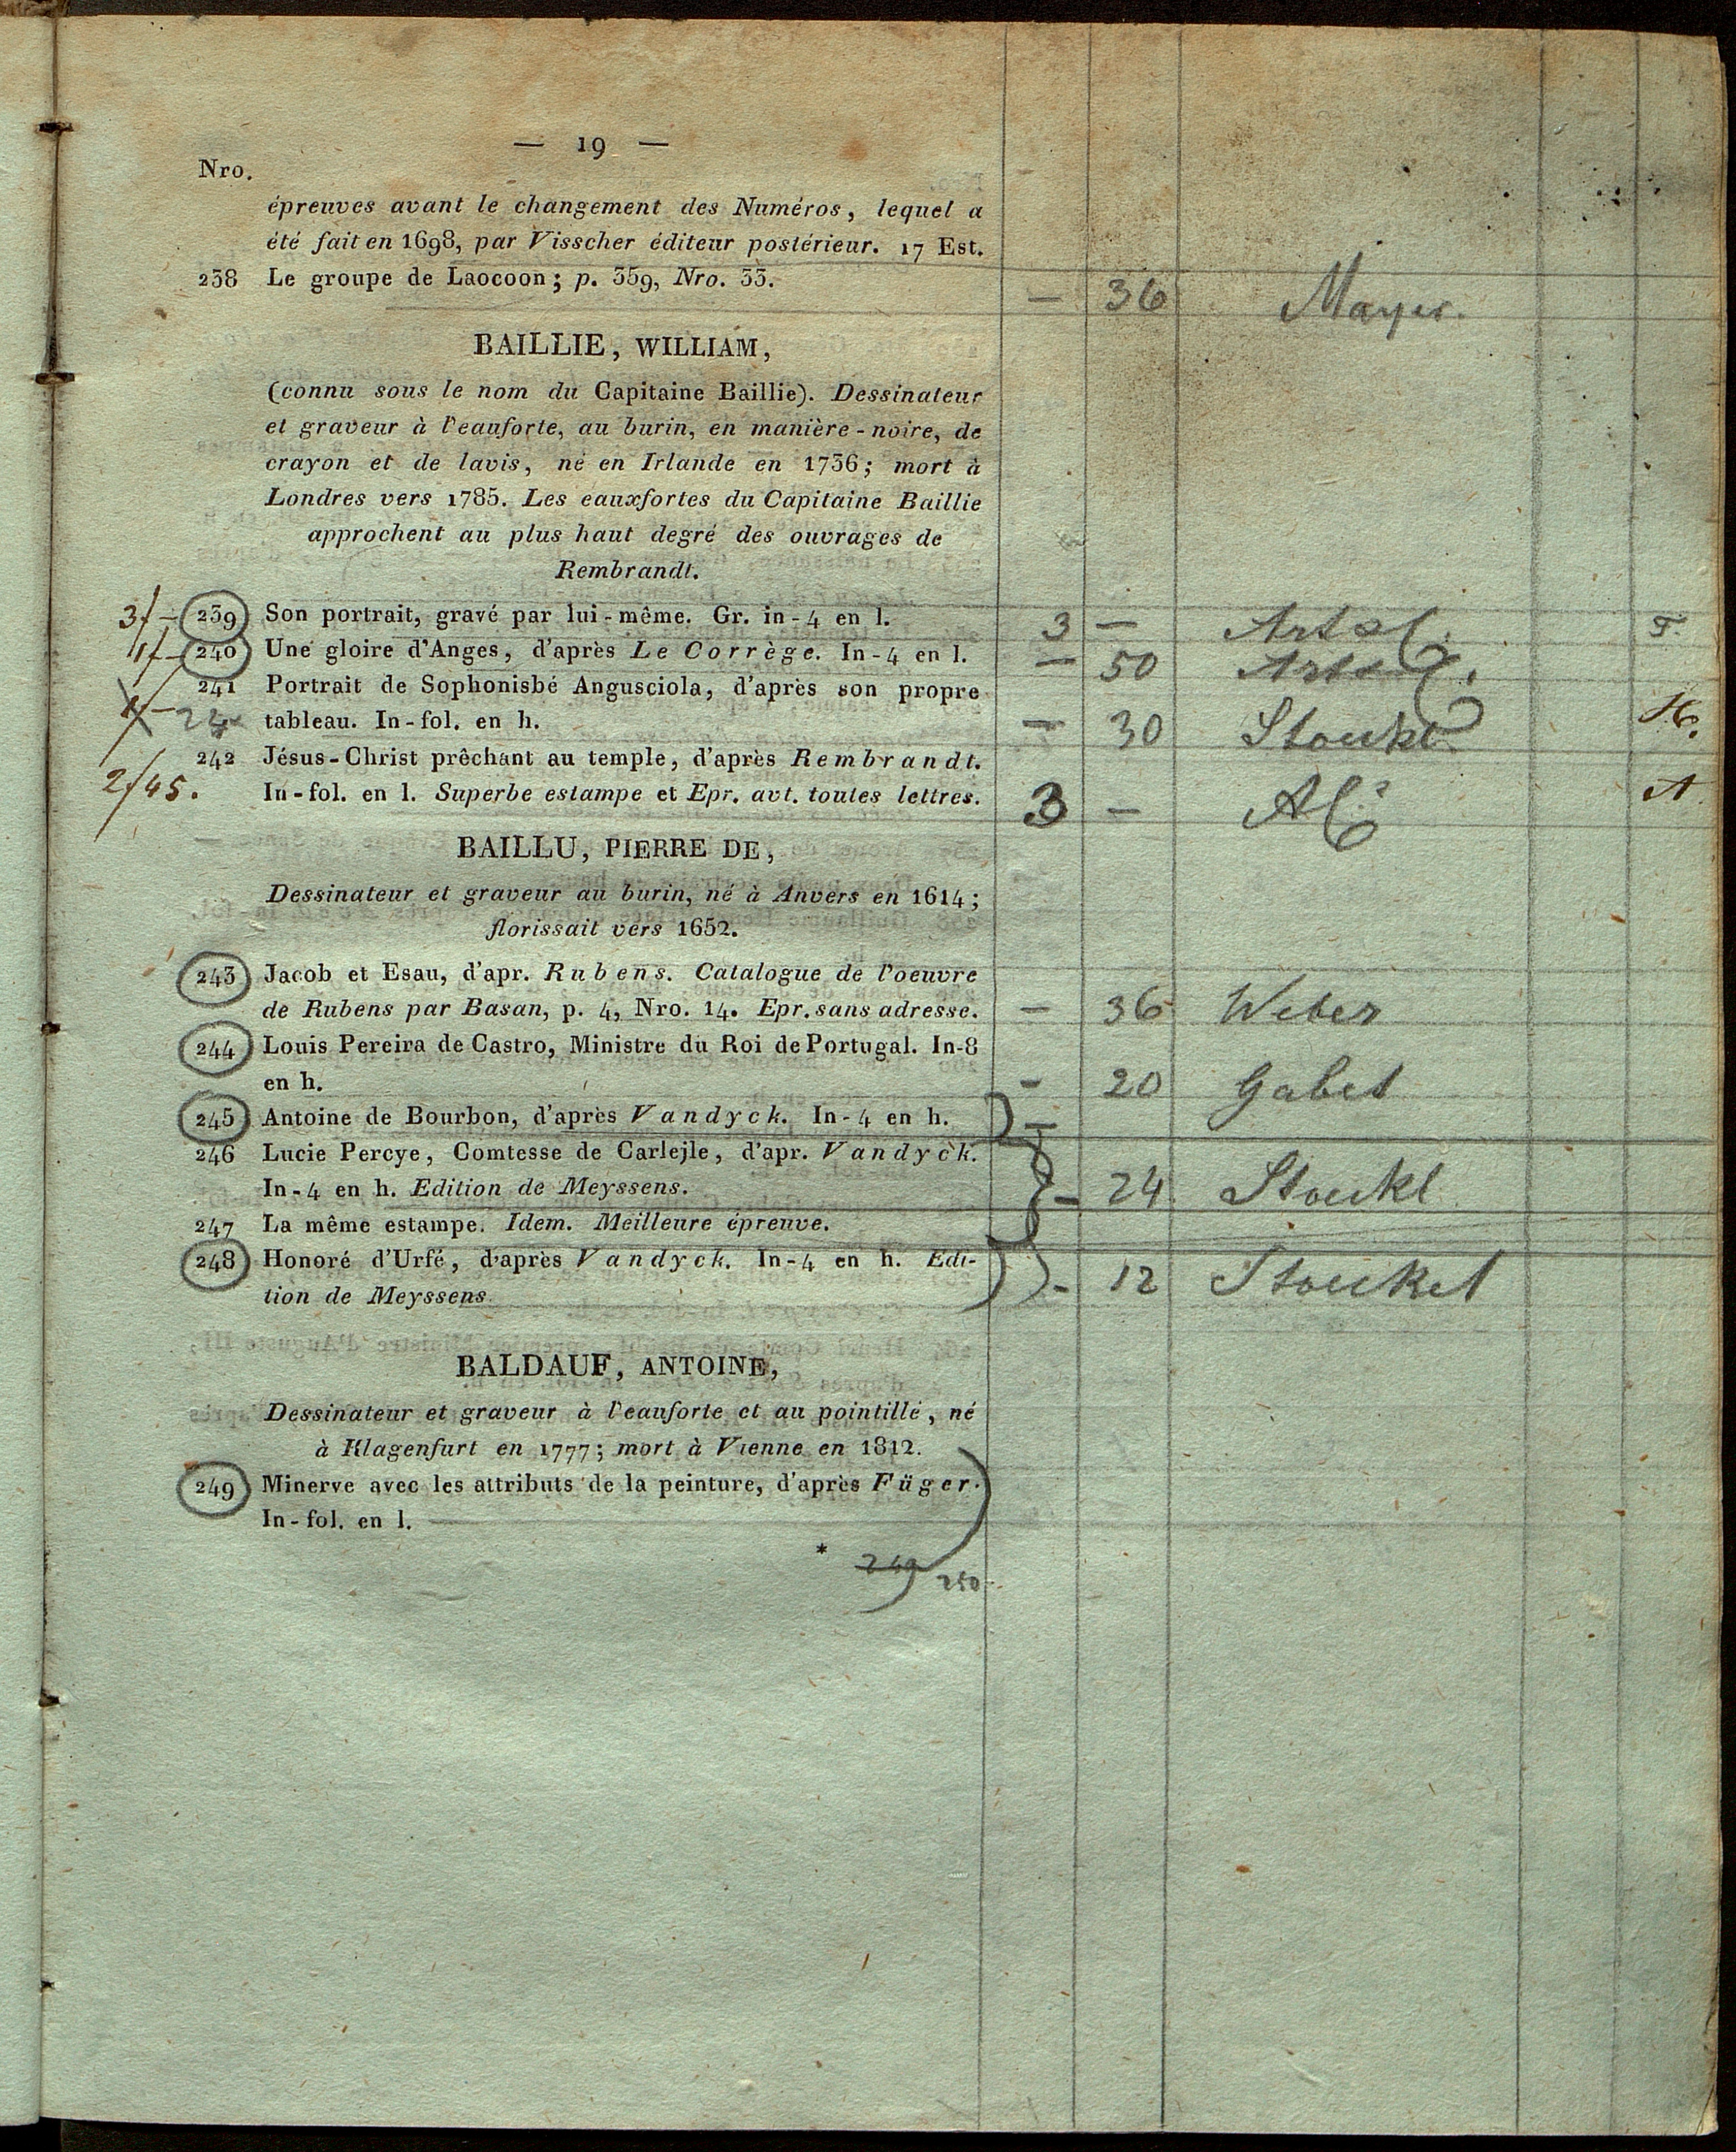 — 19 —
Nro.
épreuves avant le changement des Numéros, lequel a
été fait en 1698, par Visscher éditeur postérieur. 17 Est.
238 Le groupe de Laocoon; p. 359, Nro. 33. — 36 Mayer.
BAILLIE, WILLIAM,
(connu sous le nom du Capitaine Baillie). Dessinateur
et graveur à l'eauforte, au burin, en manière-noire, de
crayon et de lavis, né en Irlande en 1736; mort à
Londres vers 1785. Les eauxfortes du Capitaine Baillie
approchent au plus haut degré des ouvrages de
Rembrandt.
3/— 239 Son portrait, gravé par lui-même. Gr. in-4 en l. 3 —
1/— 240 Une gloire d'Anges, d'après Le Corrège. In-4 en l. — 50
241 Portrait de Sophonisbé Angusciola, d'après son propre
tableau. In-fol. en h. — 30 Stoukl
242 Jésus-Christ prêchant au temple, d'après Rembrandt.
2/45. In-fol. en l. Superbe estampe et Epr. avt. toutes lettres. 3 —
BAILLU, PIERRE DE,
Dessinateur et graveur au burin, né à Anvers en 1614;
florissait vers 1652.
243 Jacob et Esau, d'apr. Rubens. Catalogue de l'oeuvre
de Rubens par Basan, p. 4, Nro. 14. Epr. sans adresse. — 36 Weber
244 Louis Pereira de Castro, Ministre du Roi de Portugal. In-8
en h. — 20 Gabet
245 Antoine de Bourbon, d'après Vandyck. In-4 en h. —
246 Lucie Percye, Comtesse de Carlejle, d'apr. Vandyck.
In-4 en h. Edition de Meyssens. — 24 Stoukl
247 La même estampe. Idem. Meilleure épreuve.
248 Honoré d'Urfé, d'après Vandyck. In-4 en h. Edi-
tion de Meyssens. — 12 Stoukel
BALDAUF, ANTOINE,
Dessinateur et graveur à l'eauforte et au pointillé, né
à Klagenfurt en 1777; mort à Vienne en 1812.
249 Minerve avec les attributs de la peinture, d'après Füger.
In-fol. en l.
* 249 250